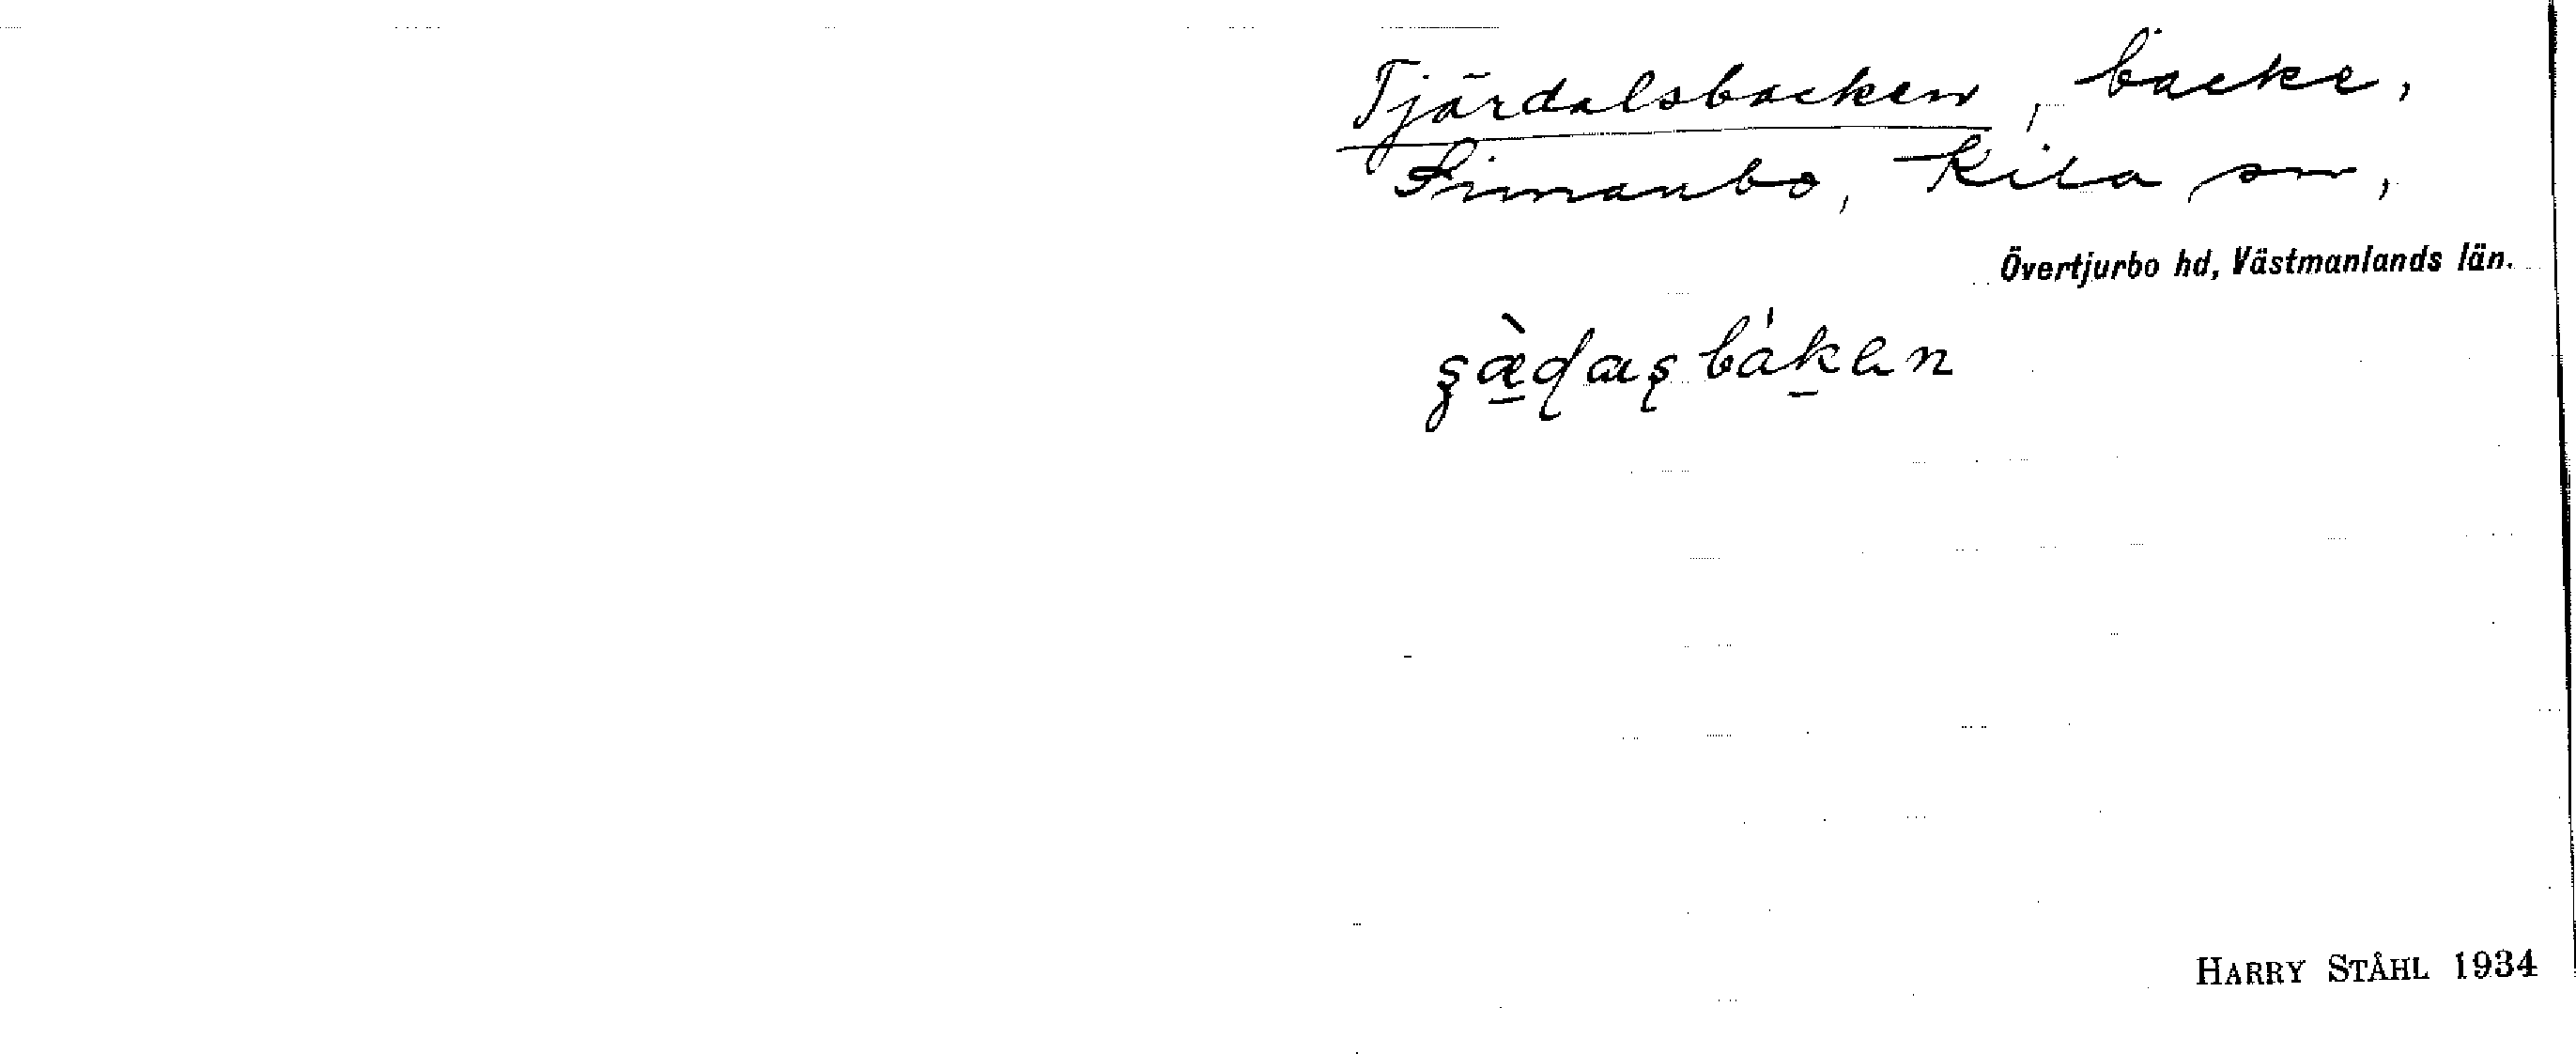 Tjärdalsbacken, backe,
Finnanbo, Kila sn,
Övertjurbo hd, Västmanlands län.
HARRY STÅHL 1934